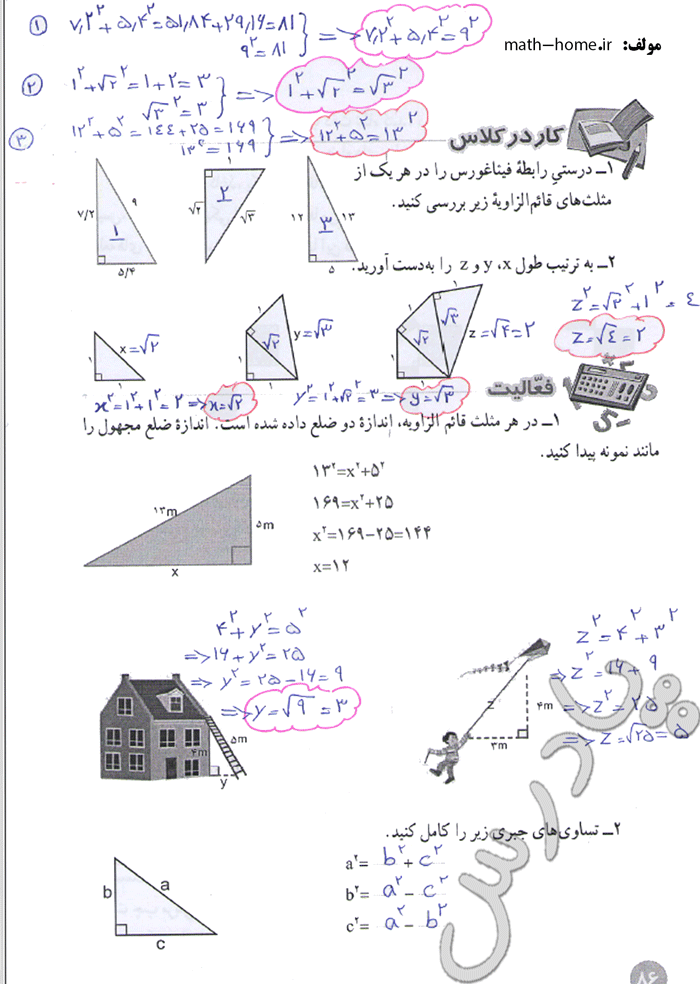 مولف: math-home.ir
① ۷,۲² + ۵,۴² = ۵۱,۸۴ + ۲۹,۱۶ = ۸۱
۹² = ۸۱
=> ۷,۲² + ۵,۴² = ۹²
② ۱² + √۲² = ۱ + ۲ = ۳
√۳² = ۳
=> ۱² + √۲² = √۳²
③ ۱۲² + ۵² = ۱۴۴ + ۲۵ = ۱۶۹
۱۳² = ۱۶۹
=> ۱۲² + ۵² = ۱۳²
کار در کلاس
۱ــ درستیِ رابطهٔ فیثاغورس را در هر یک از
مثلث‌های قائم‌الزاویهٔ زیر بررسی کنید.
۷/۲ ۹ ۱ ۵/۴
۱ √۲ ۲ √۳
۱۲ ۳ ۱۳ ۵
۲ــ به ترتیب طول x، y و z را به‌دست آورید.
۱ x = √۲ ۱
۱ ۱ √۲ y = √۳ ۱
۱ ۱ ۱ √۲ √۳ z = √۴ = ۲ ۱
z² = √۳² + ۱² = ۴
z = √۴ = ۲
x² = ۱² + ۱² = ۲ => x = √۲
y² = ۱² + √۲² = ۳ => y = √۳
فعّالیت
۱ــ در هر مثلث قائم الزاویه، اندازهٔ دو ضلع داده شده است. اندازهٔ ضلع مجهول را
مانند نمونه پیدا کنید.
۱۳m ۵m x
۱۳²=x²+۵²
۱۶۹=x²+۲۵
x²=۱۶۹−۲۵=۱۴۴
x=۱۲
۴² + y² = ۵²
=> ۱۶ + y² = ۲۵
=> y² = ۲۵ − ۱۶ = ۹
=> y = √۹ = ۳
۴m ۵m y
z² = ۴² + ۳²
=> z² = ۱۶ + ۹
=> z² = ۲۵
=> z = √۲۵ = ۵
z ۴m ۳m
۲ــ تساوی‌های جبری زیر را کامل کنید.
a²= b² + c²
b²= a² − c²
c²= a² − b²
b a c
درس
۸۶